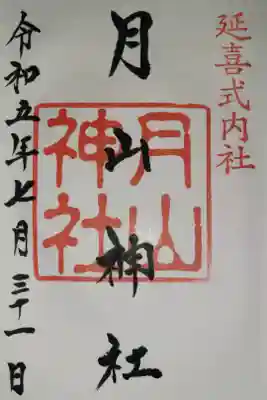 延喜式内社
月山神社
月山神社
令和五年七月三十一日